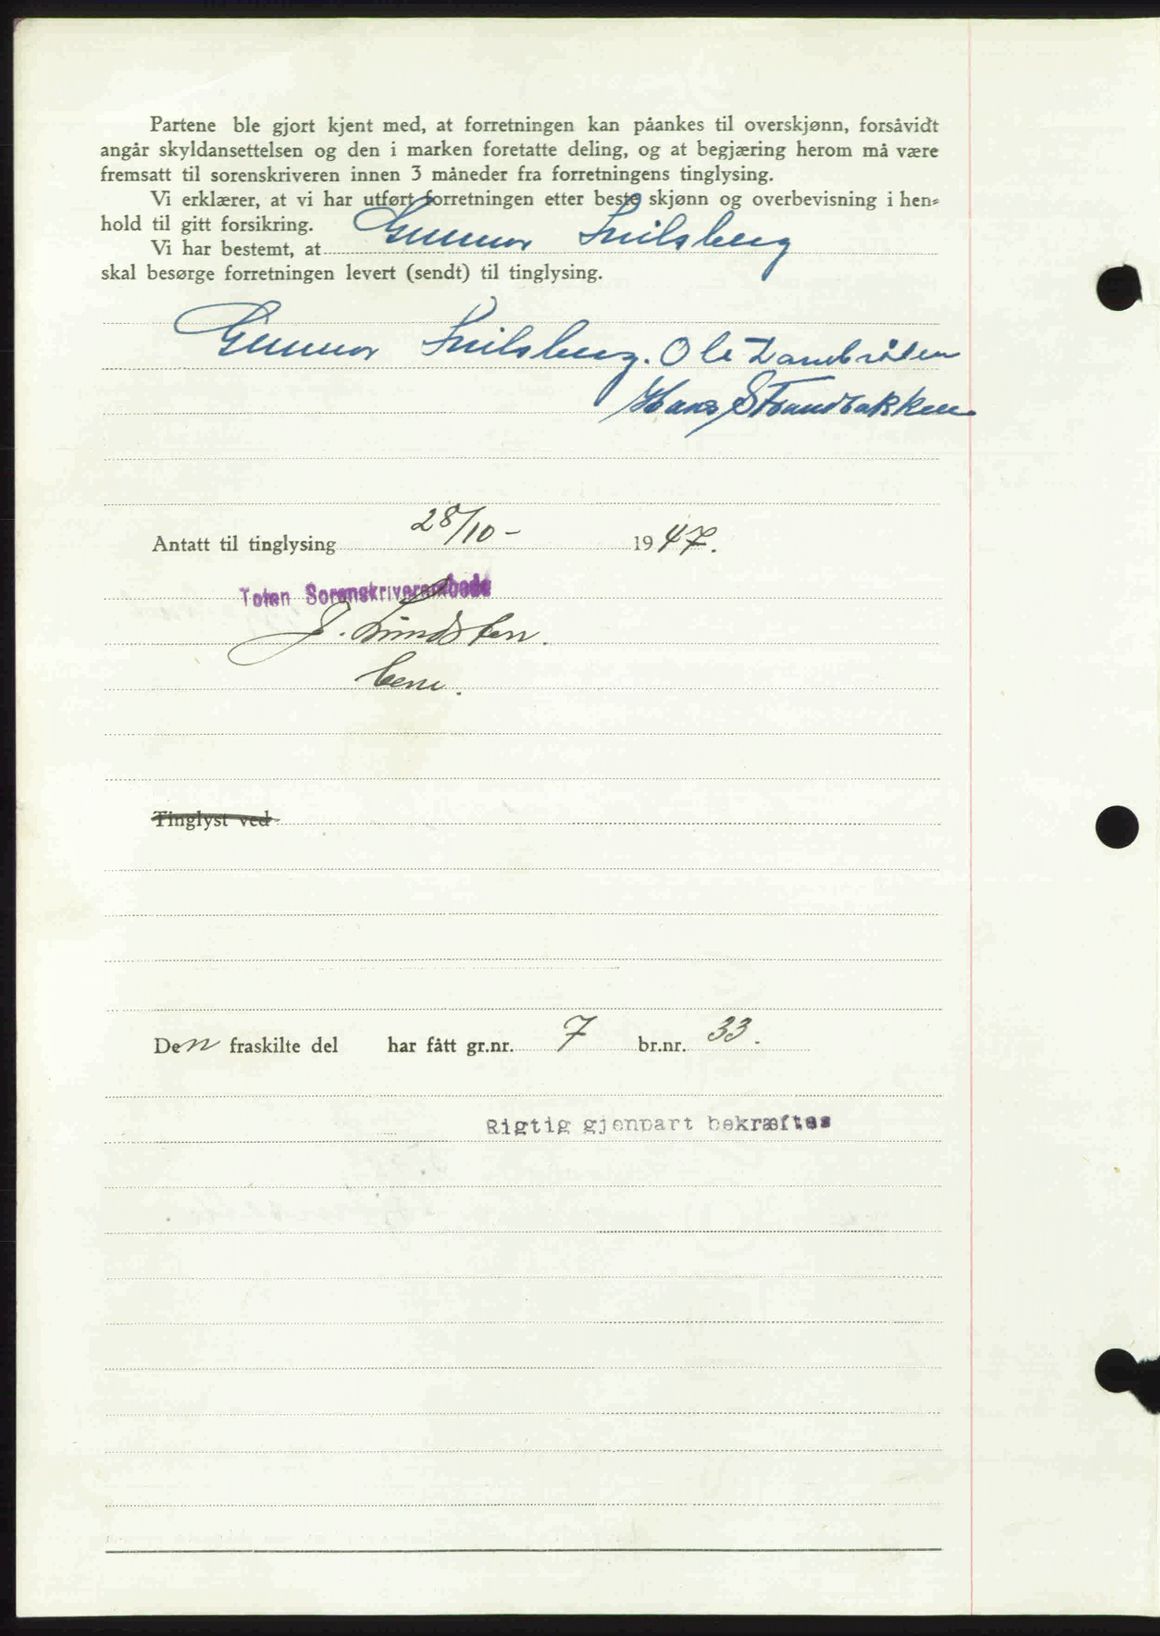 Partene ble gjort kjent med, at forretningen kan påankes til overskjønn, forsåvidt
angår skyldansettelsen og den i marken foretatte deling, og at begjæring herom må være
fremsatt til sorenskriveren innen 3 måneder fra forretningens tinglysing.
Vi erklærer, at vi har utført forretningen etter beste skjønn og overbevisning i hen-
hold til gitt forsikring.
Vi har bestemt, at Gunnar Snilsberg
skal besørge forretningen levert (sendt) til tinglysing.
Gunnar Snilsberg. Ole Lundbråten
Hans Strandbakken
Antatt til tinglysing 28/10- 1947.
Toten Sorenskriverembede
J. Lundsten.
Tinglyst ved
Den fraskilte del har fått gr.nr. 7 br.nr. 33.
Rigtig gjenpart bekræftes